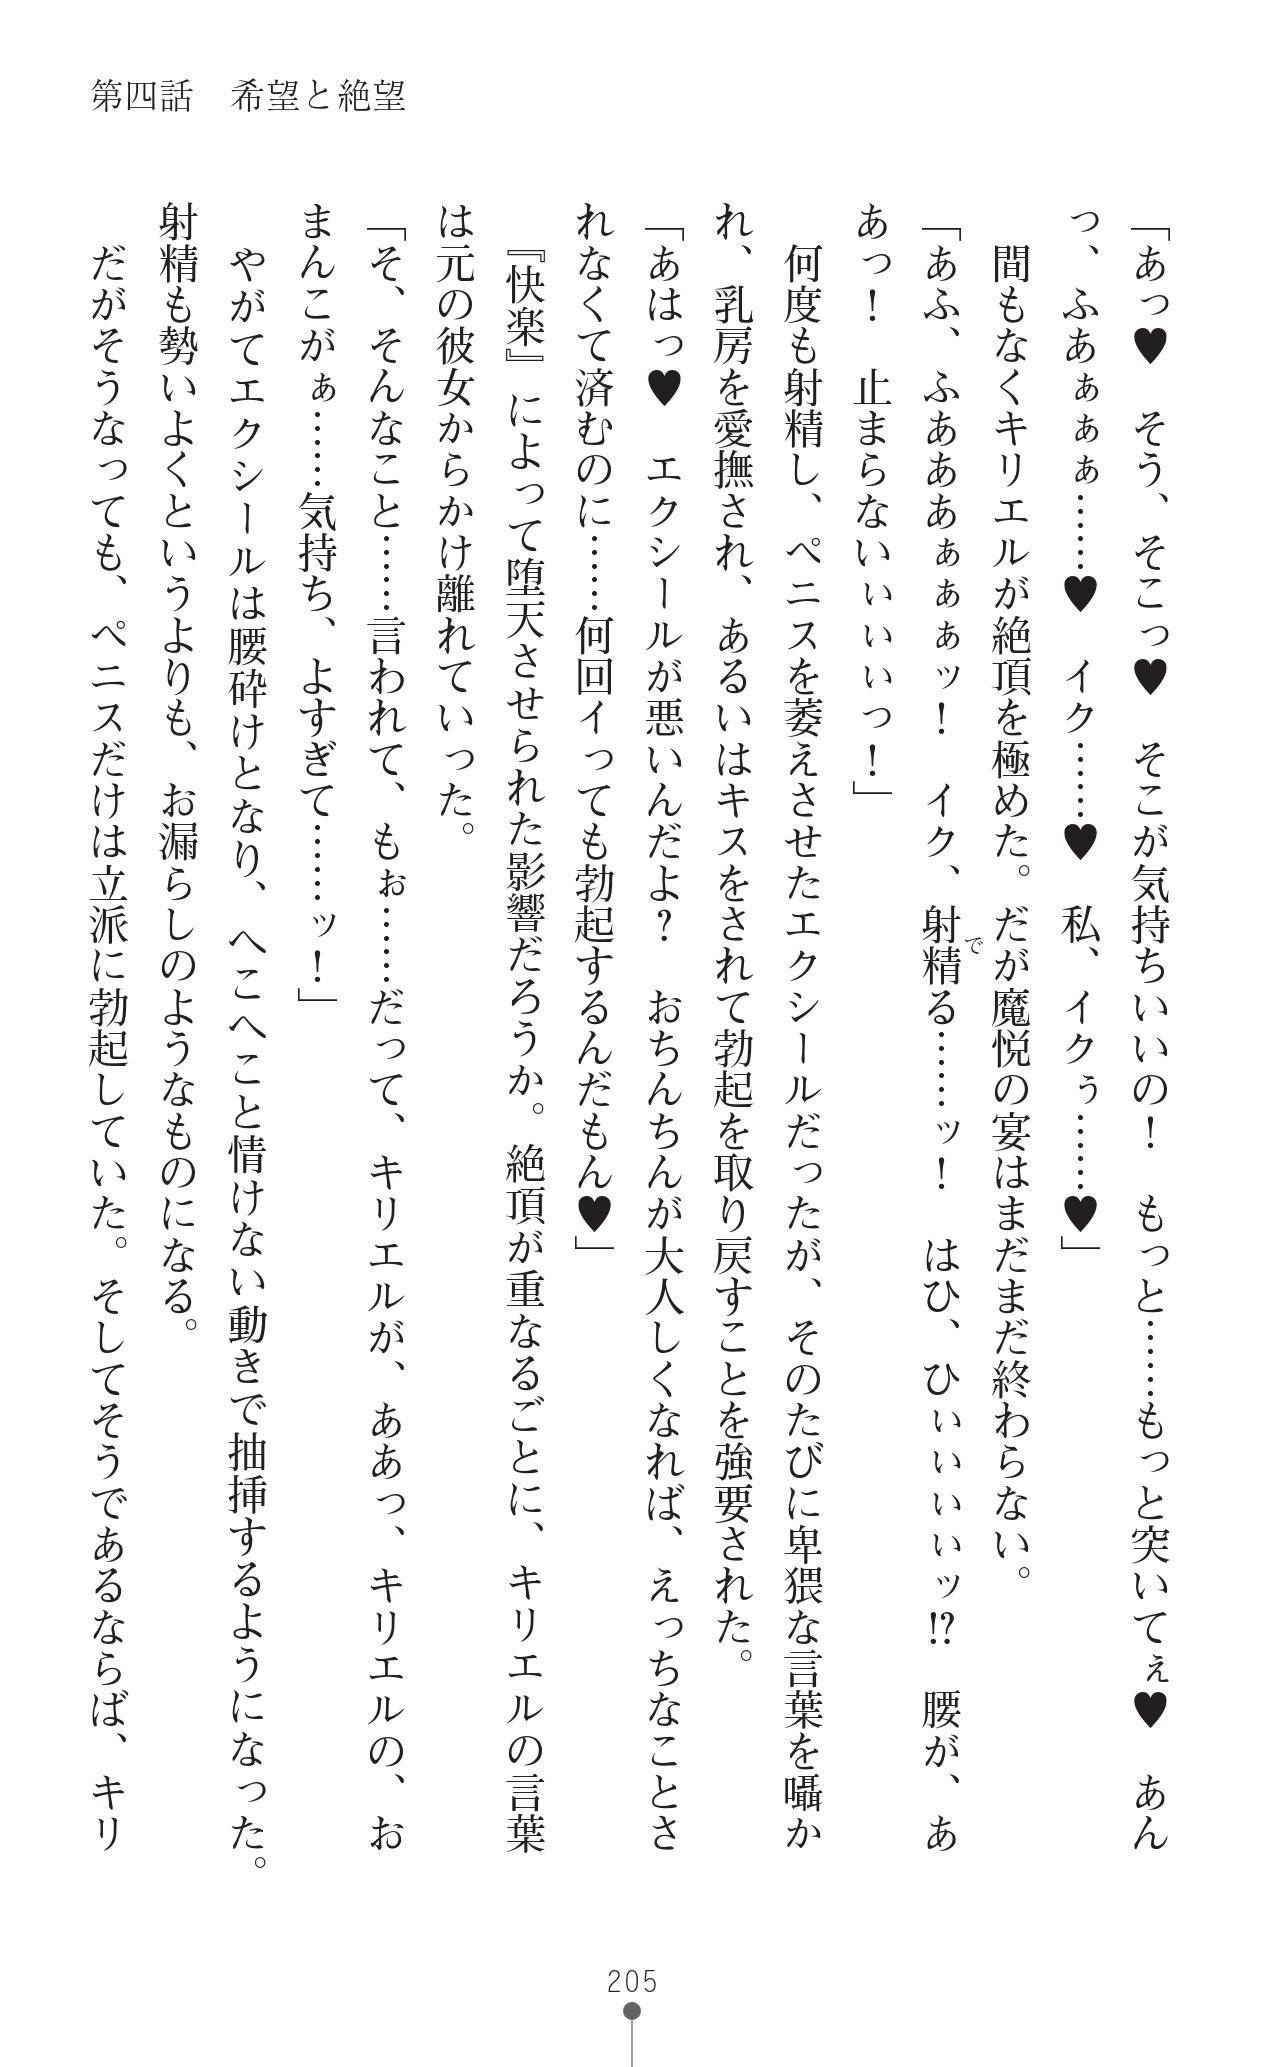 第四話　希望と絶望
「あっ♥　そう、そこっ♥　そこが気持ちいいの！　もっと……もっと突いてぇ♥　あん
っ、ふあぁぁぁ……♥　イク……♥　私、イクぅ……♥」
　間もなくキリエルが絶頂を極めた。だが魔悦の宴はまだまだ終わらない。
「あふ、ふああぁぁぁッ！　イク、射精る……ッ！　はひ、ひぃぃぃぃッ!?　腰が、あ
で
あっ！　止まらないぃぃぃっ！」
　何度も射精し、ペニスを萎えさせたエクシールだったが、そのたびに卑猥な言葉を囁か
れ、乳房を愛撫され、あるいはキスをされて勃起を取り戻すことを強要された。
「あはっ♥　エクシールが悪いんだよ？　おちんちんが大人しくなれば、えっちなことさ
れなくて済むのに……何回イっても勃起するんだもん♥」
『快楽』によって堕天させられた影響だろうか。絶頂が重なるごとに、キリエルの言葉
は元の彼女からかけ離れていった。
「そ、そんなこと……言われて、もぉ……だって、キリエルが、ああっ、キリエルの、お
まんこがぁ……気持ち、よすぎて……ッ！」
　やがてエクシールは腰砕けとなり、へこへこと情けない動きで抽挿するようになった。
射精も勢いよくというよりも、お漏らしのようなものになる。
　だがそうなっても、ペニスだけは立派に勃起していた。そしてそうであるならば、キリ
205